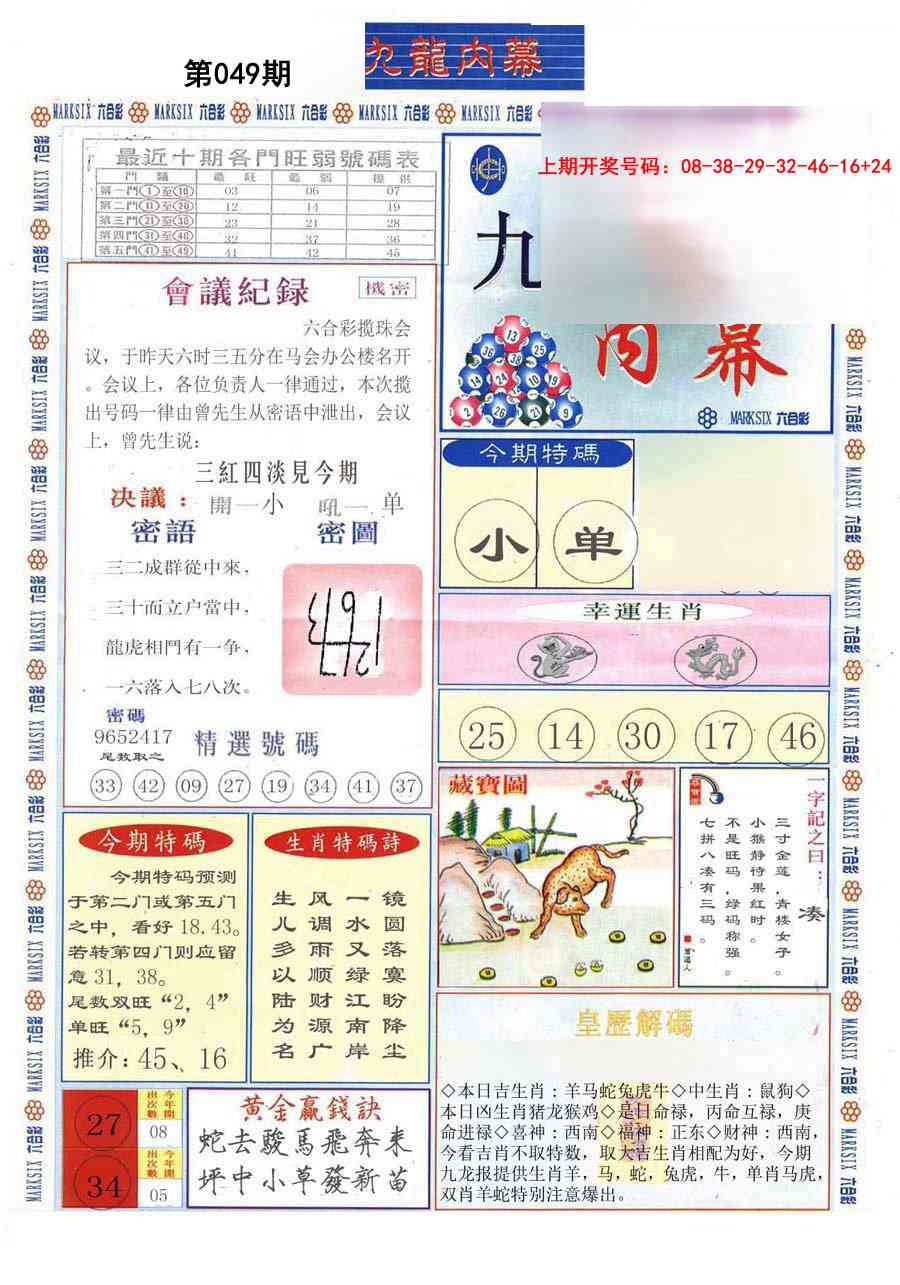 第049期
九龍内幕
MARKSIX 六合彩 MARKSIX 六合彩 MARKSIX 六合彩 MARKSIX 六合彩 MARKSIX 六合彩
上期开奖号码：08-38-29-32-46-16+24
最近十期各門旺弱號碼表
門 類 最 旺 最 弱 提 供
第一門①至⑩ 03 06 07
第二門⑪至⑳ 12 14 19
第三門㉑至㉚ 23 21 28
第四門㉛至㊵ 32 37 36
第五門㊶至㊾ 41 42 45
九
内 幕
13
36 38 25
14 24 10 19
2 26 21 9
MARKSIX 六合彩
會議紀录
機密
六合彩揽珠会
议，于昨天六时三五分在马会办公楼名开
。会议上，各位负责人一律通过，本次揽
出号码一律由曾先生从密语中泄出，会议
上，曾先生说：
三紅四淡見今期
决議：開一小 吼一单
密語
三二成群從中來，
三十而立户當中，
龍虎相鬥有一争，
一六落入七八次。
密圖
密碼
9652417
尾数取之
精選號碼
33 42 09 27 19 34 41 37
今期特碼
小 单
幸運生肖
25 14 30 17 46
藏寶圖
一字記之曰：凑
三寸金莲，青楼女子。
小猴静待果红时。
不是旺码，绿码称强。
七拼八凑有三码。
今期特碼
今期特码预测
于第二门或第五门
之中，看好 18.43。
若转第四门则应留
意 31，38。
尾数双旺“2，4”
单旺“5，9”
推介：45、16
生肖特碼詩
生 风 一 镜
儿 调 水 圆
多 雨 又 落
以 顺 绿 寞
陆 财 江 盼
为 源 南 降
名 广 岸 尘
27
今年開出次數
08
34
今年開出次數
05
黄金赢錢訣
蛇去駿馬飛奔来
坪中小草發新苗
皇歷解碼
◇本日吉生肖：羊马蛇兔虎牛◇中生肖：鼠狗◇
本日凶生肖猪龙猴鸡◇是日命禄，丙命互禄，庚
命进禄◇喜神：西南◇福神：正东◇财神：西南，
今看吉肖不取特数，取大吉生肖相配为好，今期
九龙报提供生肖羊，马，蛇，兔虎，牛，单肖马虎，
双肖羊蛇特别注意爆出。